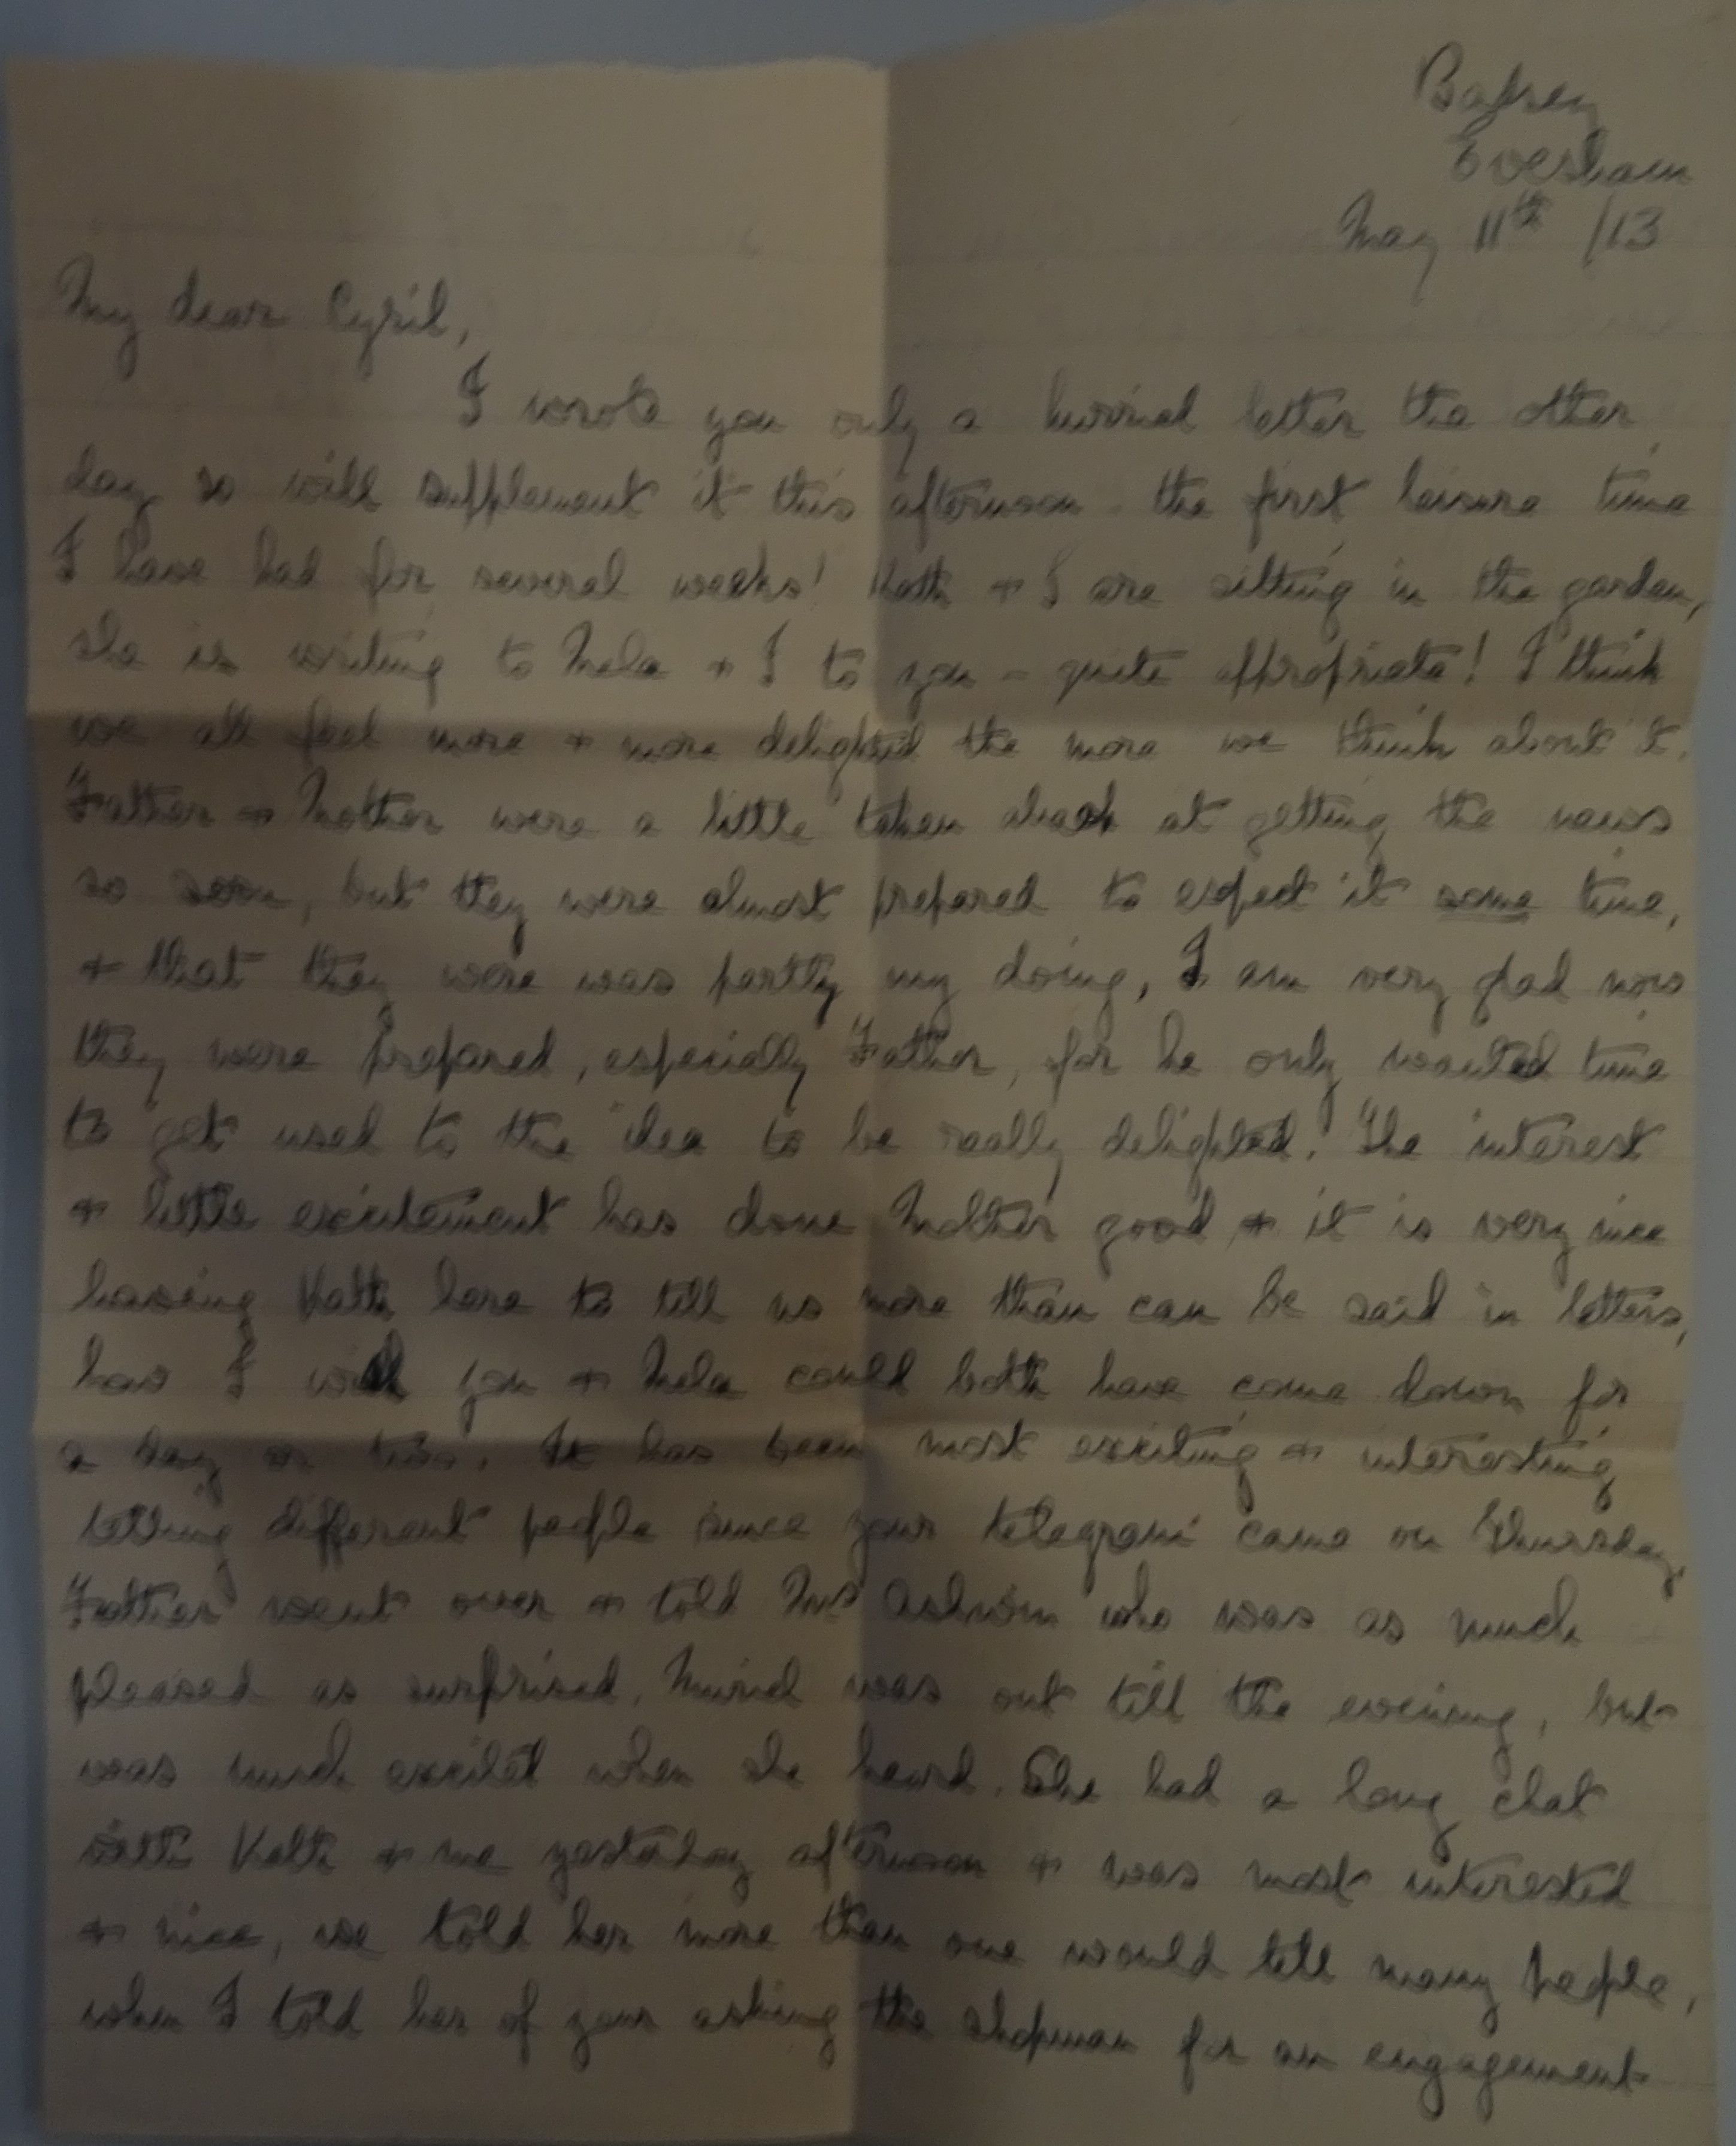 Badsey
Evesham
May 11th /13
My dear Cyril,
I wrote you only a hurried letter the other
day so will supplement it this afternoon - the first leisure time
I have had for several weeks! Kath + I are sitting in the garden,
she is writing to Mela + I to you - quite appropriate! I think
we all feel more + more delighted the more we think about it.
Father + Mother were a little taken aback at getting the news
so soon, but they were almost prepared to expect it some time,
+ that they were was partly my doing, I am very glad now
they were prepared, especially Father, for he only wanted time
to get used to the idea to be really delighted. The interest
+ little excitement has done Mother good + it is very nice
having Kath here to tell us more than can be said in letters,
how I wish you + Mela could both have come down for
a day or two. It has been most exciting + interesting
telling different people since your telegram came on Thursday.
Father went over + told Mrs Ashwin who was as much
pleased as surprised. Muriel was out till the evening, but
was much excited when she heard. She had a long chat
with Kath + me yesterday afternoon + was most interested
+ nice, we told her more than one would tell many people,
when I told her of your asking the shopman for an engagement